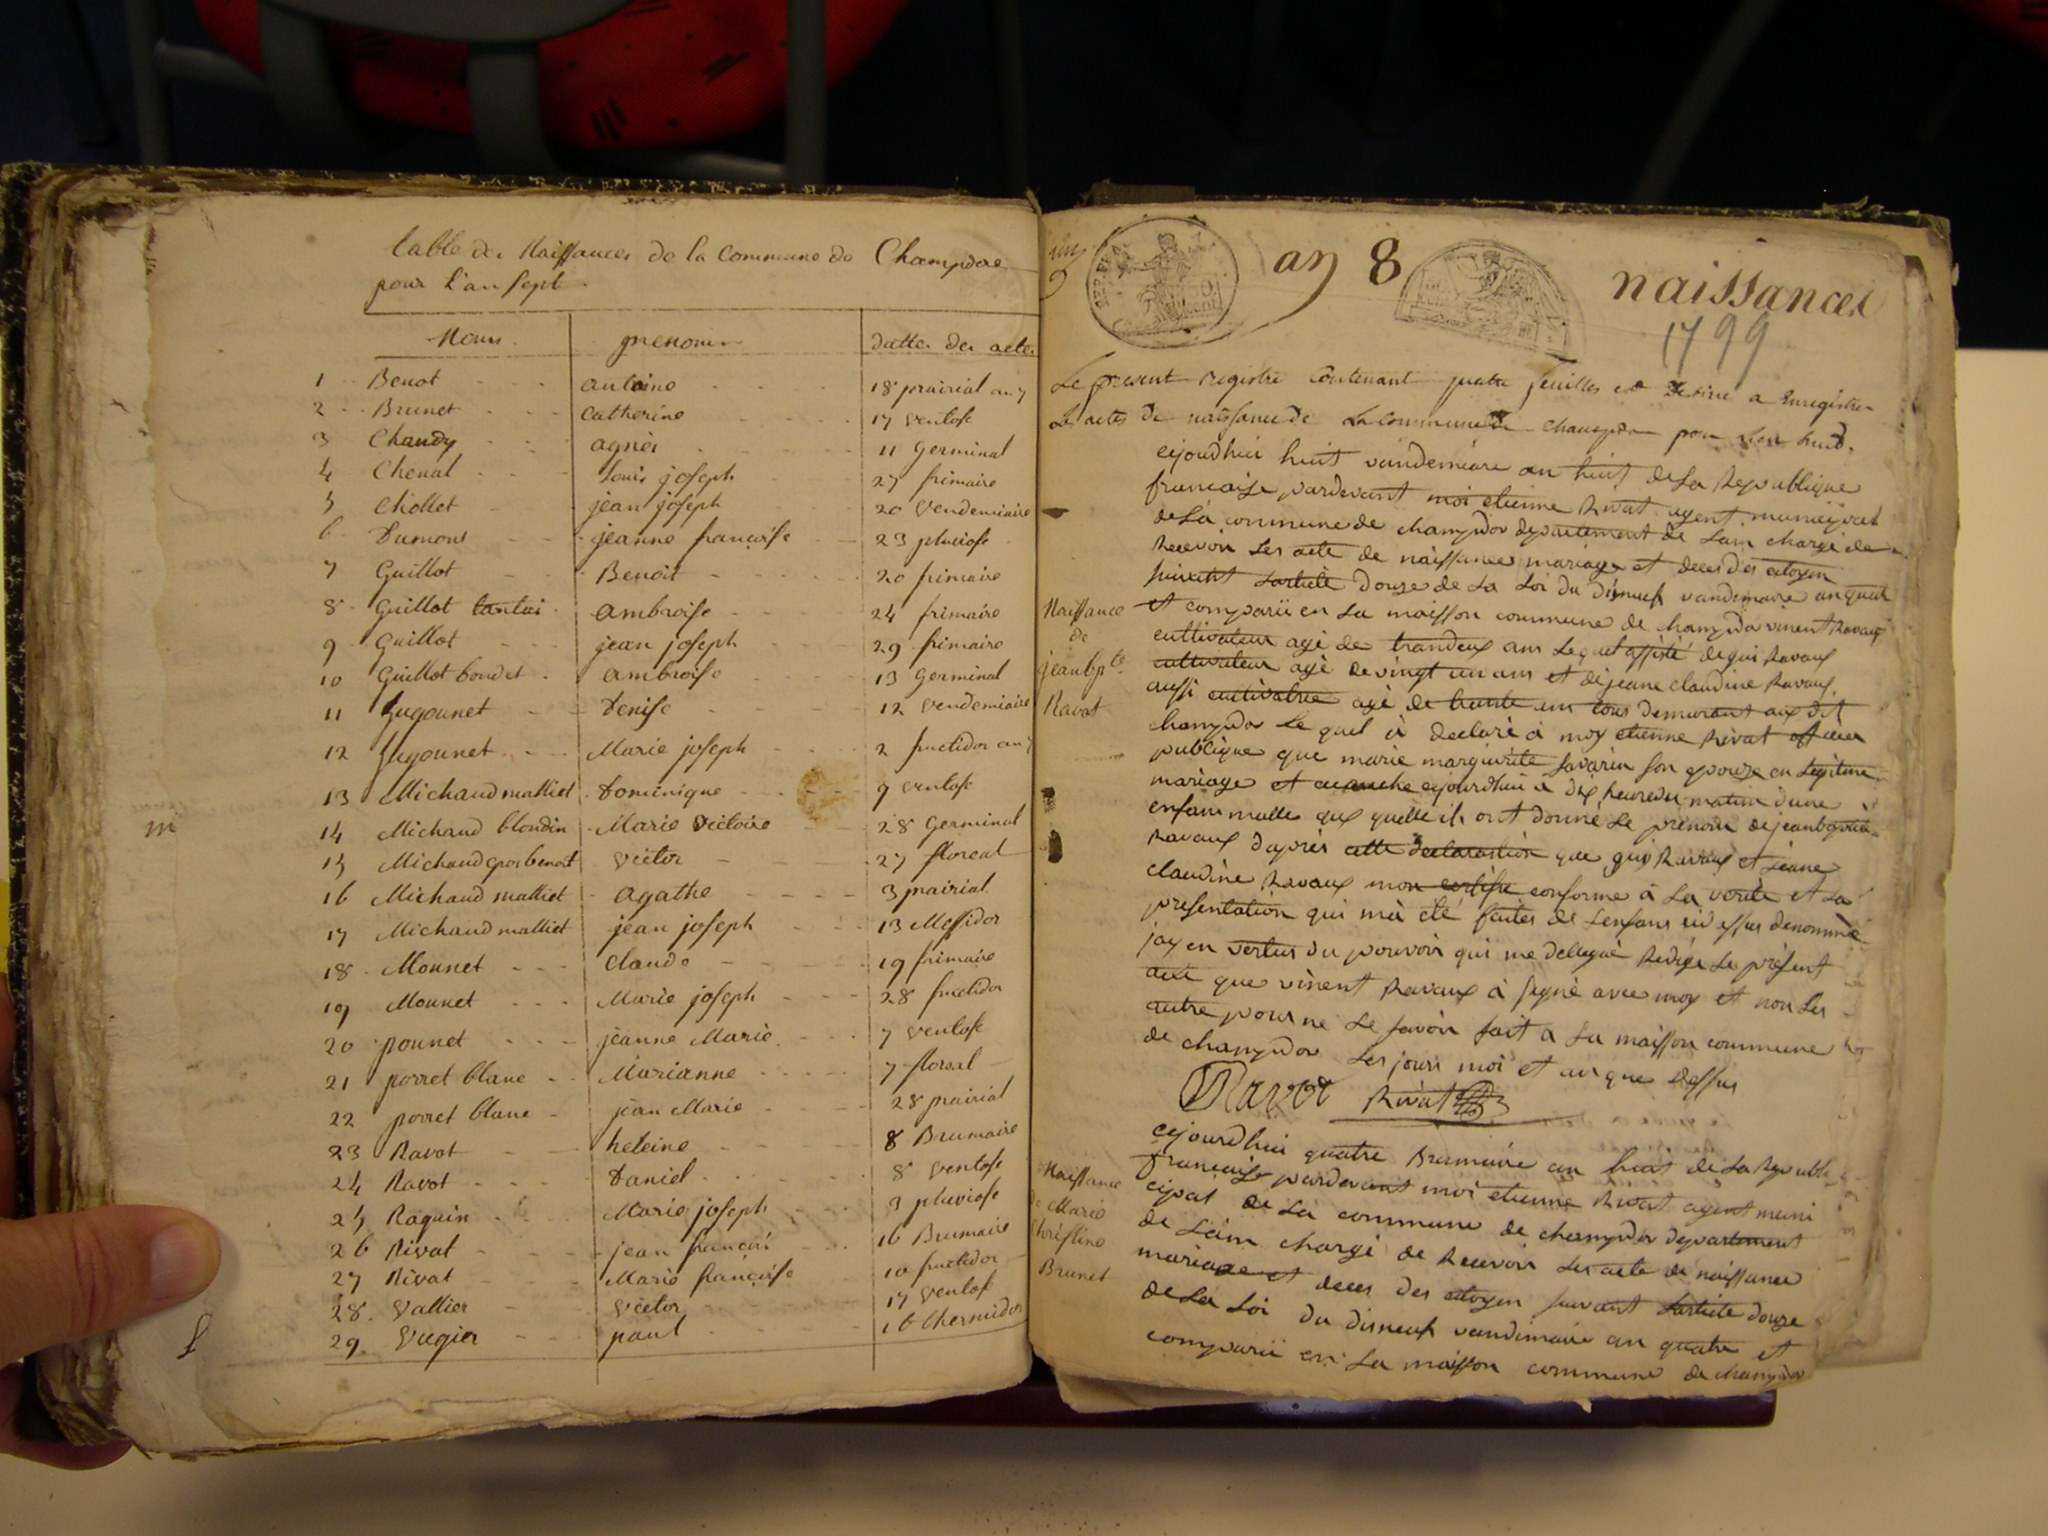 table des Naissances de la Commune de Champdore
pour l'an sept
Noms prenoms datte des actes
1 Benot antoine 18 prairial an 7
2 Brunet Catherine 17 ventose
3 Chaudy agnès 11 Germinal
4 Chenal Louis joseph 27 frimaire
5 Chollet jean joseph 20 vendemiaire
6 Dumont jeanne françoise 23 pluviose
7 Guillot Benoit 20 frimaire
8 Guillot tantai ambroise 24 frimaire
9 Guillot jean joseph 29 frimaire
10 Guillot boudet ambroise 13 Germinal
11 Gugonnet Denise 12 vendemiaire
12 Gugonnet Marie joseph 2 fructidor an 7
13 Michaud malliet Dominique 9 ventose
14 Michaud blondin Marie victoire 28 Germinal
15 Michaud gros benoit victor 27 floreal
16 Michaud malliet agathe 3 prairial
17 Michaud malliet jean joseph 13 Messidor
18 Monnet Claude 19 frimaire
19 Monnet Marie joseph 28 fructidor
20 ponnet jeanne Marie 7 ventose
21 porret blanc Marianne 7 floreal
22 porret blanc jean Marie 28 prairial
23 Ravot heleine 8 Brumaire
24 Ravot Daniel 8 ventose
25 Raquin Marie joseph 3 pluviose
26 Rivat jean françois 16 Brumaire
27 Rivat Marie françoise 10 fructidor
28 Vallier victor 17 ventose
29 Vugier paul 16 thermidor
m
f
an 8 naissances
1799
Le present registre Contenant quatre feuilles est destiné a Enregistrer
Les actes de naissance de La Commune de champdor pour l'an huit.
cejourdhui huit vandemiare an huit de La Republique
francaise pardevant moi etienne Rivat agent municipal
de La commune de champdor departement de Lain chargé de
Recevoir Les acte de naissances mariage et deces des citoyen
suivant Lartiele douze de La Loi du disneuf vandemaire an quatre
Naissance
de
jean bpte
Ravot
et comparü en La maisson commune de champdor vinent Ravaux
cultivateur agé de trandeux ans Lequel assisté de gui Ravaux
cultivateur agé de vingt un ans et de jeane claudine Ravaux
aussi cultivatrice agé de trente un ans tous demurant aux dit
champdor Le quel à declaré à moy etienne Rivat officier
publique que marie marguerite Savarin son epouze en Legitime
mariage et acouche cejourdhui a dix heures du matin dune
enfam malle aux quelle ils ont donné Le prenom de jean baptiste
Ravaux daprès cette declarastion que gui Ravaux et jeane
claudine Ravaux mon certifie conforme à La verité et La
presentation qui mà été faites de Lenfans cidessus denommé
jay en vertus du pouvoir qui me dellegué Redigé Le présent
acte que vinent Ravaux à signé avec moy et non Les
autre pour ne Le savoir fait a La maisson commune
de champdor Les jours moi et an que dessus
Ravot Rivat
Naissance
de Marie
Christine
Brunet
cejourdhui quatre Brumaire an huit de La Republi
francaise pardevant moi etienne Rivat agent muni
cipal de La commune de champdor departement
de Lain chargé de Recevoir Les acte de naissance
mariage et deces des citoyen suivant Lartiele douze
de La Loi du disneuf vandimaire an quatre et
comparü en La maisson commune de champdor